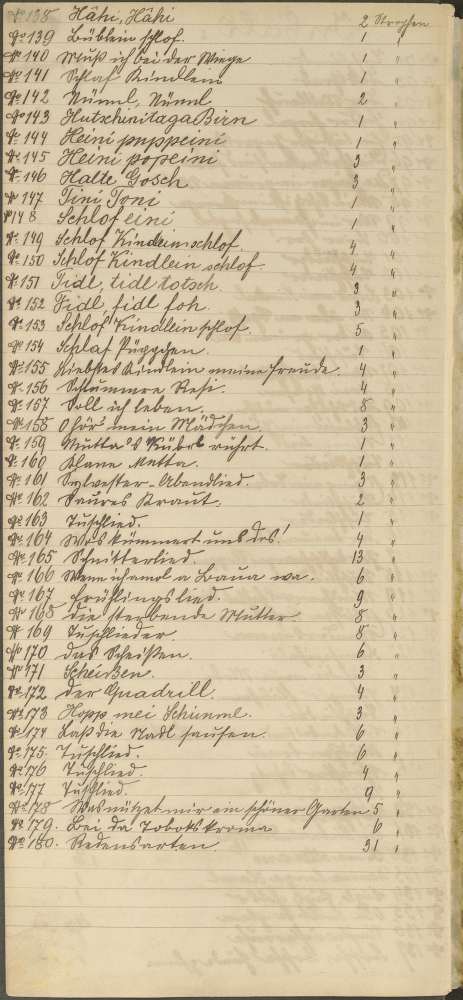 № 138 Hâhi, Hâhi 2 Strophen
№ 139 Büblein schlof. 1 "
№ 140 Muß ich bei der Wiege 1 "
№ 141 Schlaf Kindlein 1 "
№ 142 Nünnl, Nünnl 2 "
№ 143 Hutschinitaga Birn 1 "
№ 144 Heini puppeini 1 "
№ 145 Heini popeini 3 "
№ 146 Halte Gosch 3 "
№ 147 Tini Toni 1 "
№ 148 Schlof eini 1 "
№ 149 Schlof Kindleinschlof. 4 "
№ 150 Schlof Kindlein schlof. 4 "
№ 151 Tidl, tidl totsch. 3 "
№ 152 Fidl fidl foh. 3 "
№ 153 Schlof Kindlein schlof. 5 "
№ 154 Schlaf Püppchen. 1 "
№ 155 Liebstes Kindlein meine Freude. 4 "
№ 156 Schlummre Resi. 4 "
№ 157 Soll ich leben. 8 "
№ 158 O hör' mein Mädchen. 3 "
№ 159 Mutta's Kübel rührt. 1 "
№ 160 Mutta. 1 "
№ 161 Sylvester-Abendlied. 3 "
№ 162 Saures Kraut. 2 "
№ 163 Tuschlied. 1 "
№ 164 Wos kümmert uns dos! 4 "
№ 165 Schnitterlied. 13 "
№ 166 Wenn ich amol a Baua wa. 6 "
№ 167 Frühlingslied. 9 "
№ 168 Die sterbende Mutter. 8 "
№ 169 Tuschlieder. 8 "
№ 170 Das Scheißen. 6 "
№ 171 Scheißen. 3 "
№ 172 Der Quadrill. 4 "
№ 173 Hopp mei Schimml. 3 "
№ 174 Laß die Nadl sausen. 6 "
№ 175 Tuschlied. 6 "
№ 176 Tuschlied. 4 "
№ 177 Tuschlied. 9 "
№ 178 Was nützet mir ein schöner Garten 5 "
№ 179. Bei da Tobakskroma 6 "
№ 180. Redensarten. 31 "